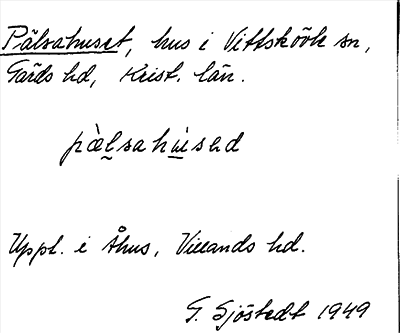 Pälsahuset, hus i Vittskövle sn,
Gärds hd, Krist. län.
pàlsahùsəd
Uppt. i Åhus, Villands hd.
G. Sjöstedt 1949